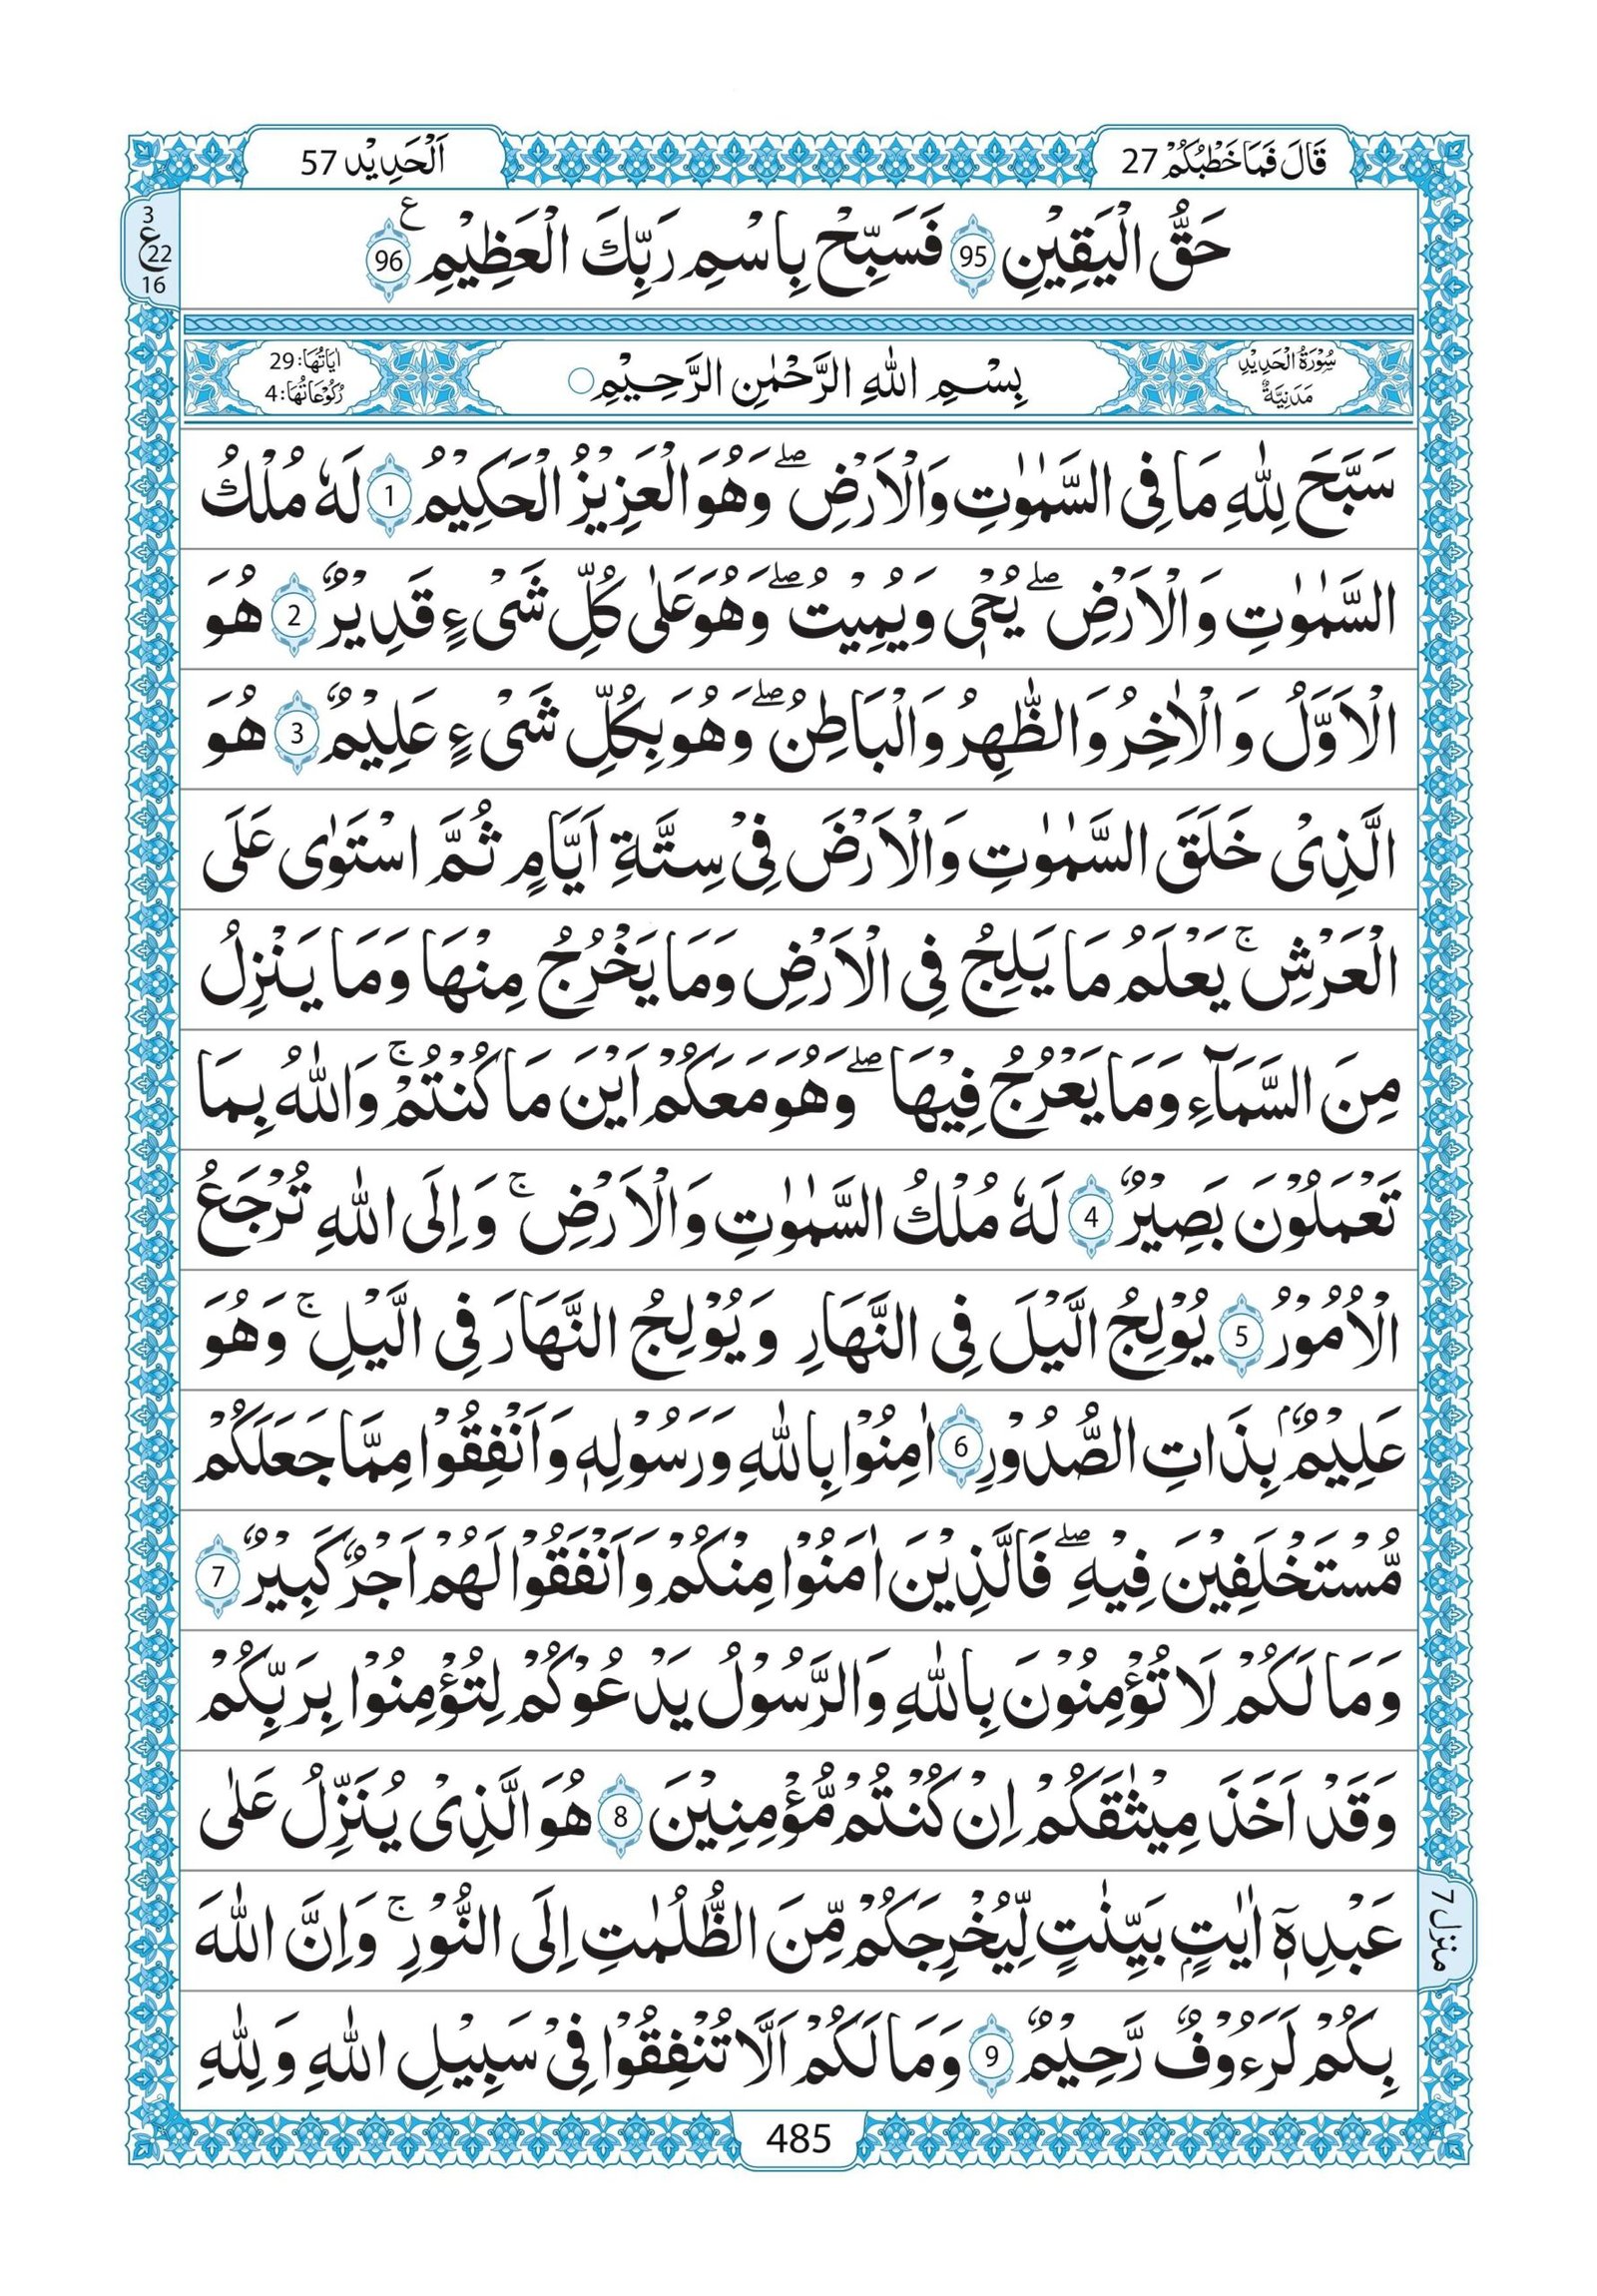 قَالَ فَمَا خَطْبُكُمْ 27
اَلْحَدِيْد 57
3
ع
22
16
حَقُّ الْيَقِيْنِ 95 فَسَبِّحْ بِاسْمِ رَبِّكَ الْعَظِيْمِ ع 96
سُوْرَةُ الْحَدِيْدِ
مَدَنِيَّةٌ
بِسْمِ اللّٰهِ الرَّحْمٰنِ الرَّحِيْمِ
اٰيَاتُهَا: 29
رُكُوْعَاتُهَا: 4
سَبَّحَ لِلّٰهِ مَا فِى السَّمٰوٰتِ وَالْاَرْضِ ۖ وَهُوَ الْعَزِيْزُ الْحَكِيْمُ 1 لَهٗ مُلْكُ
السَّمٰوٰتِ وَالْاَرْضِ ۖ يُحْىٖ وَيُمِيْتُ ۖ وَهُوَ عَلٰى كُلِّ شَىْءٍ قَدِيْرٌ 2 هُوَ
الْاَوَّلُ وَالْاٰخِرُ وَالظّٰهِرُ وَالْبَاطِنُ ۖ وَهُوَ بِكُلِّ شَىْءٍ عَلِيْمٌ 3 هُوَ
الَّذِىْ خَلَقَ السَّمٰوٰتِ وَالْاَرْضَ فِىْ سِتَّةِ اَيَّامٍ ثُمَّ اسْتَوٰى عَلَى
الْعَرْشِ ۚ يَعْلَمُ مَا يَلِجُ فِى الْاَرْضِ وَمَا يَخْرُجُ مِنْهَا وَمَا يَنْزِلُ
مِنَ السَّمَآءِ وَمَا يَعْرُجُ فِيْهَا ۖ وَهُوَ مَعَكُمْ اَيْنَ مَا كُنْتُمْ ۚ وَاللّٰهُ بِمَا
تَعْمَلُوْنَ بَصِيْرٌ 4 لَهٗ مُلْكُ السَّمٰوٰتِ وَالْاَرْضِ ۚ وَاِلَى اللّٰهِ تُرْجَعُ
الْاُمُوْرُ 5 يُوْلِجُ الَّيْلَ فِى النَّهَارِ وَيُوْلِجُ النَّهَارَ فِى الَّيْلِ ۚ وَهُوَ
عَلِيْمٌۢ بِذَاتِ الصُّدُوْرِ 6 اٰمِنُوْا بِاللّٰهِ وَرَسُوْلِهٖ وَاَنْفِقُوْا مِمَّا جَعَلَكُمْ
مُّسْتَخْلَفِيْنَ فِيْهِ ۖ فَالَّذِيْنَ اٰمَنُوْا مِنْكُمْ وَاَنْفَقُوْا لَهُمْ اَجْرٌ كَبِيْرٌ 7
وَمَا لَكُمْ لَا تُؤْمِنُوْنَ بِاللّٰهِ وَالرَّسُوْلُ يَدْعُوْكُمْ لِتُؤْمِنُوْا بِرَبِّكُمْ
وَقَدْ اَخَذَ مِيْثٰقَكُمْ اِنْ كُنْتُمْ مُّؤْمِنِيْنَ 8 هُوَ الَّذِىْ يُنَزِّلُ عَلٰى
عَبْدِهٖٓ اٰيٰتٍۭ بَيِّنٰتٍ لِّيُخْرِجَكُمْ مِّنَ الظُّلُمٰتِ اِلَى النُّوْرِ ۚ وَاِنَّ اللّٰهَ
بِكُمْ لَرَءُوْفٌ رَّحِيْمٌ 9 وَمَا لَكُمْ اَلَّا تُنْفِقُوْا فِىْ سَبِيْلِ اللّٰهِ وَلِلّٰهِ
منزل 7
485